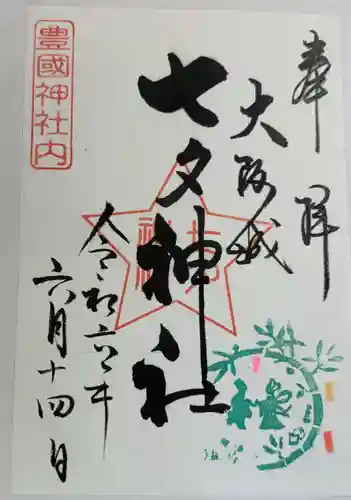 奉拝
大阪城
七夕神社
令和六年
六月十四日
豊國神社内